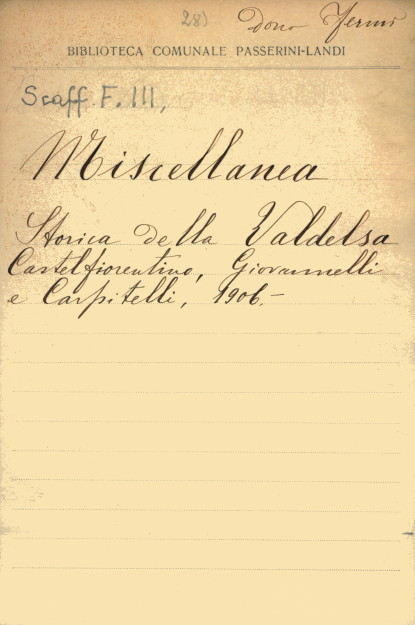 28)
Dono Fermi
BIBLIOTECA COMUNALE PASSERINI-LANDI
Scaff. F. III,
Miscellanea
Storica della Valdelsa
Castelfiorentino, Giovannelli
e Carpitelli, 1906.-